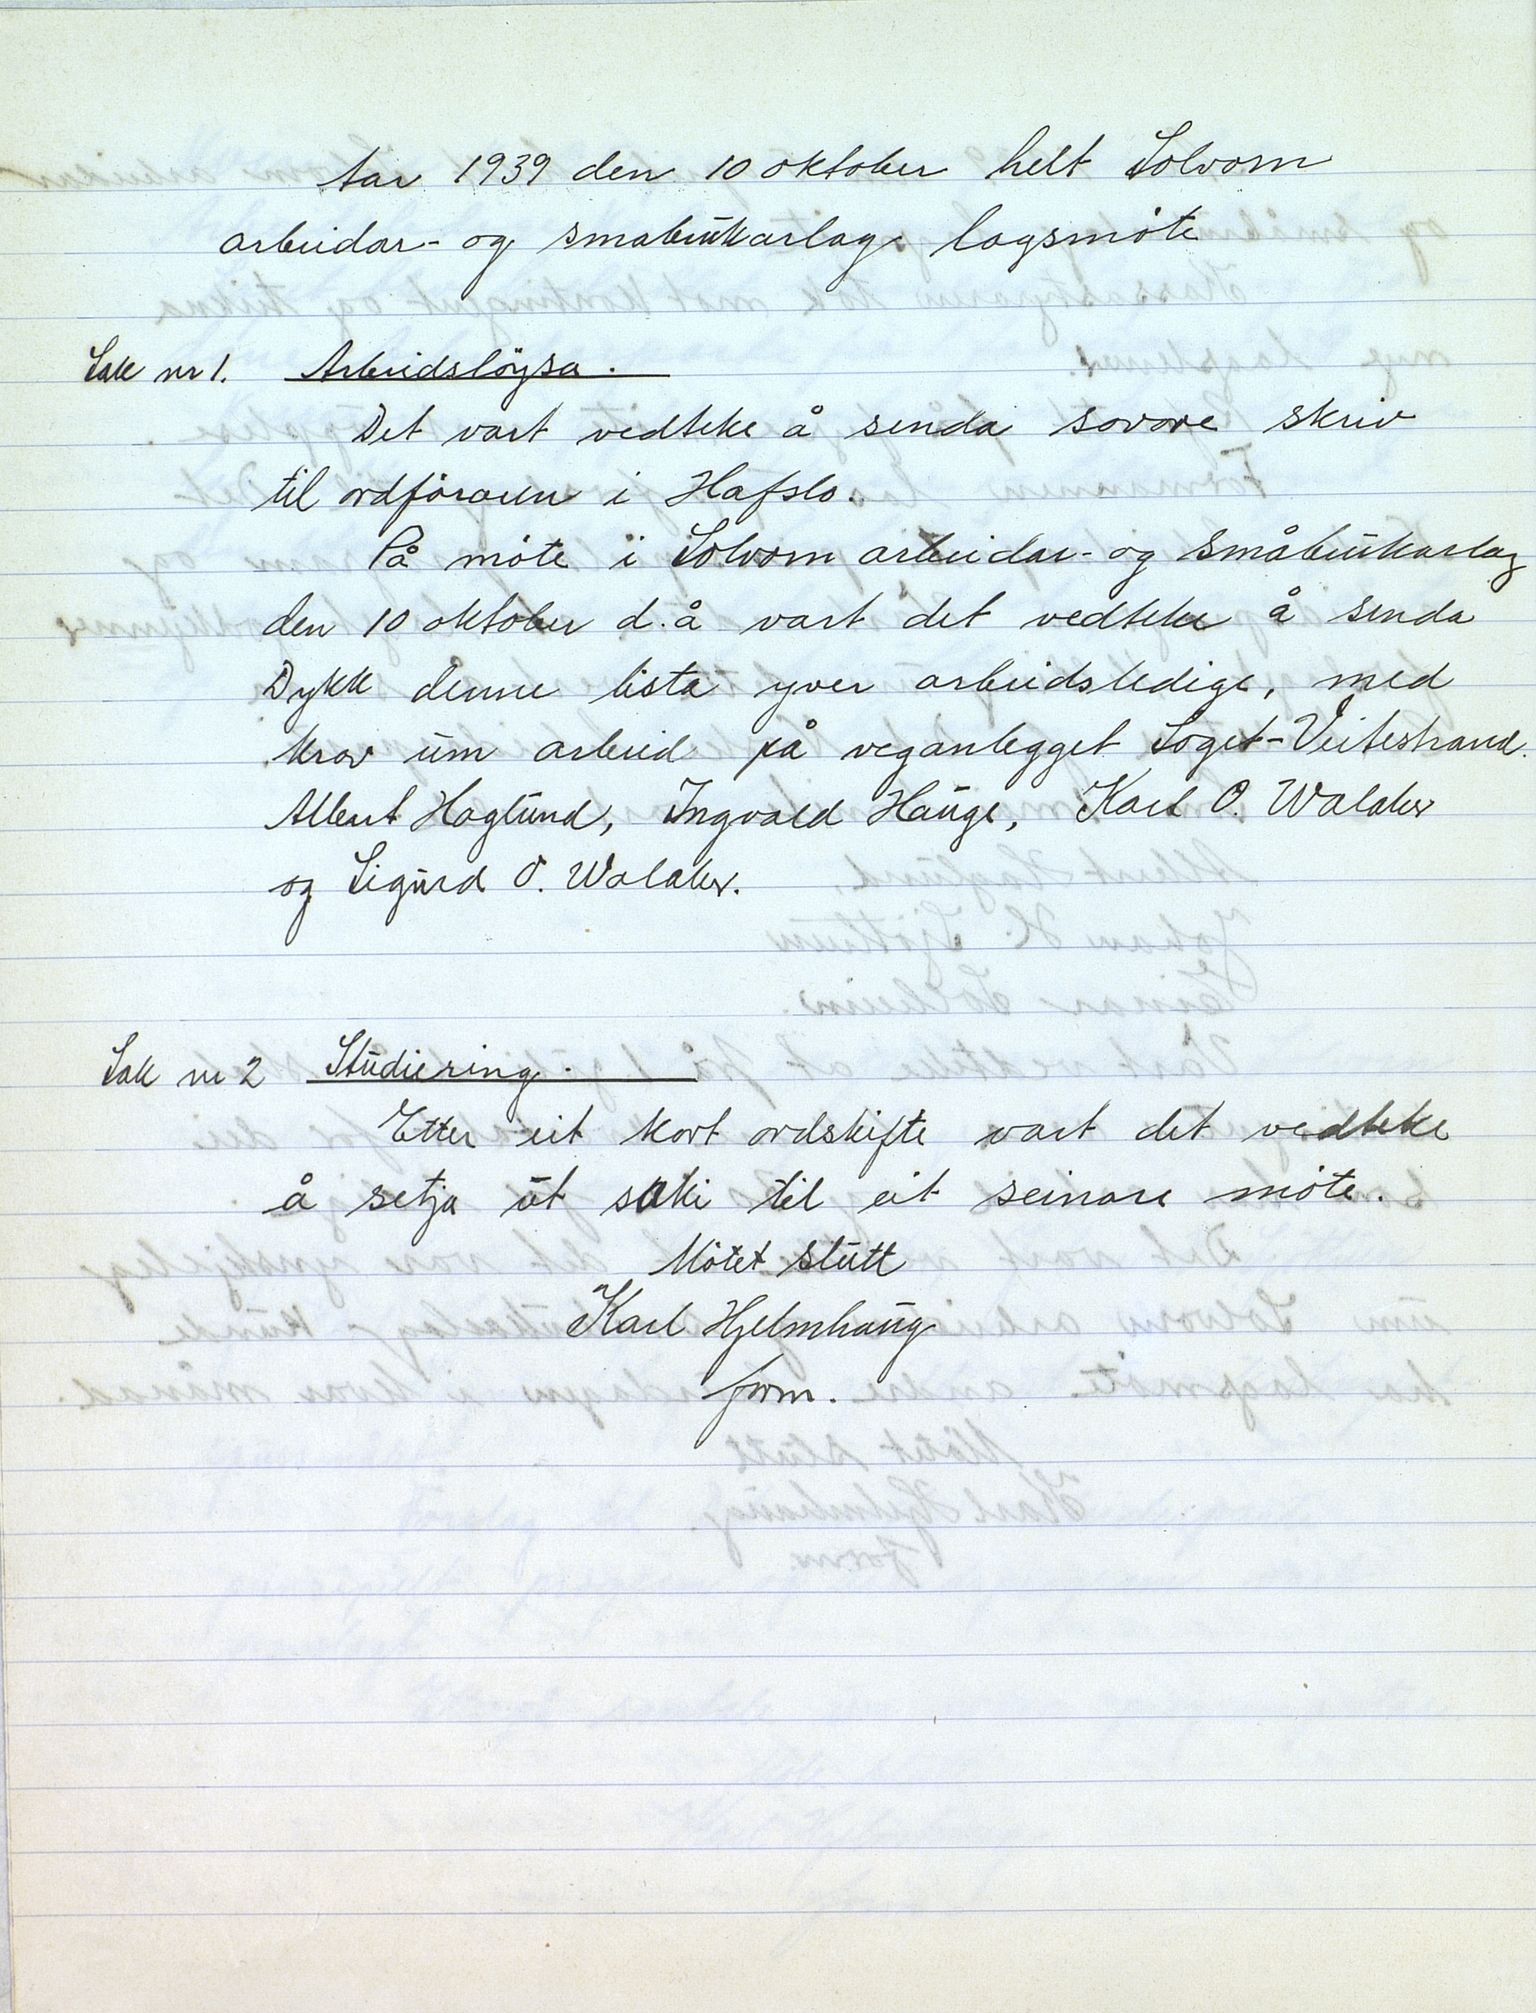 År 1939 den 10 oktober helt Solvorn
arbeidar- og småbrukarlag lagsmöte
Sak nr 1. Arbeidslöysa.
Det vart vedteke å senda sovore skriv
til ordföraren i Hafslo.
På möte i Solvorn arbeidar- og småbrukarlag
den 10 oktober d.å vart det vedteke å senda
Dykk denne lista yver arbeidsledige, med
krav um arbeid på veganlegget Soget-Veitestrand.
Albert Haglund, Ingvald Hauge, Karl O. Walaker
og Sigurd O. Walaker.
Sak nr 2 Studiering.
Etter eit kort ordskifte vart det vedteke
å setja ut saki til eit seinare möte.
Mötet slutt
Karl Hjelmhaug
form.